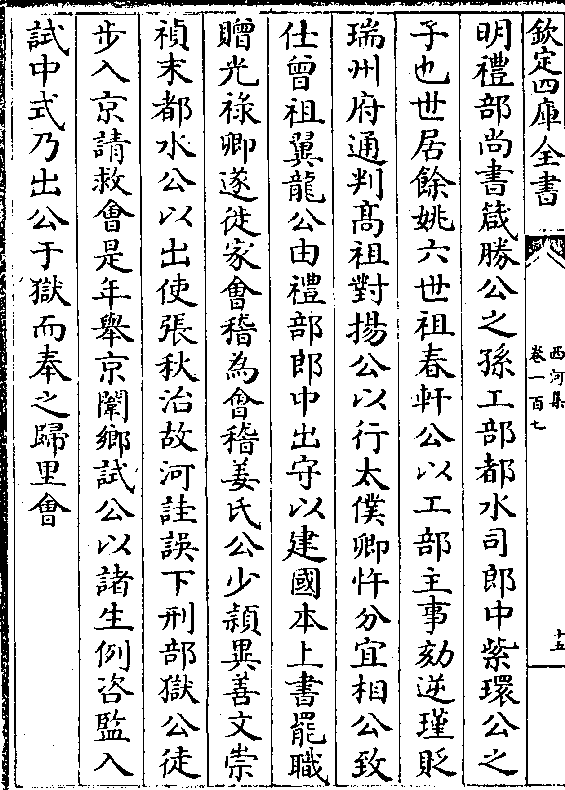 欽定四庫全書
西河集
卷一百七
十五
明禮部尚書箴勝公之孫工部都水司郎中紫環公之
子也世居餘姚六世祖春軒公以工部主事劾逆瑾貶
瑞州府通判髙祖對揚公以行太僕卿忤分宜相公致
仕曾祖翼龍公由禮部郎中出守以建國本上書罷職
贈光祿卿遂徙家會稽為會稽姜氏公少穎異善文崇
禎末都水公以出使張秋治故河詿誤下刑部獄公徒
步入京請救會是年舉京闈鄉試公以諸生例咨監入
試中式乃出公于獄而奉之歸里會